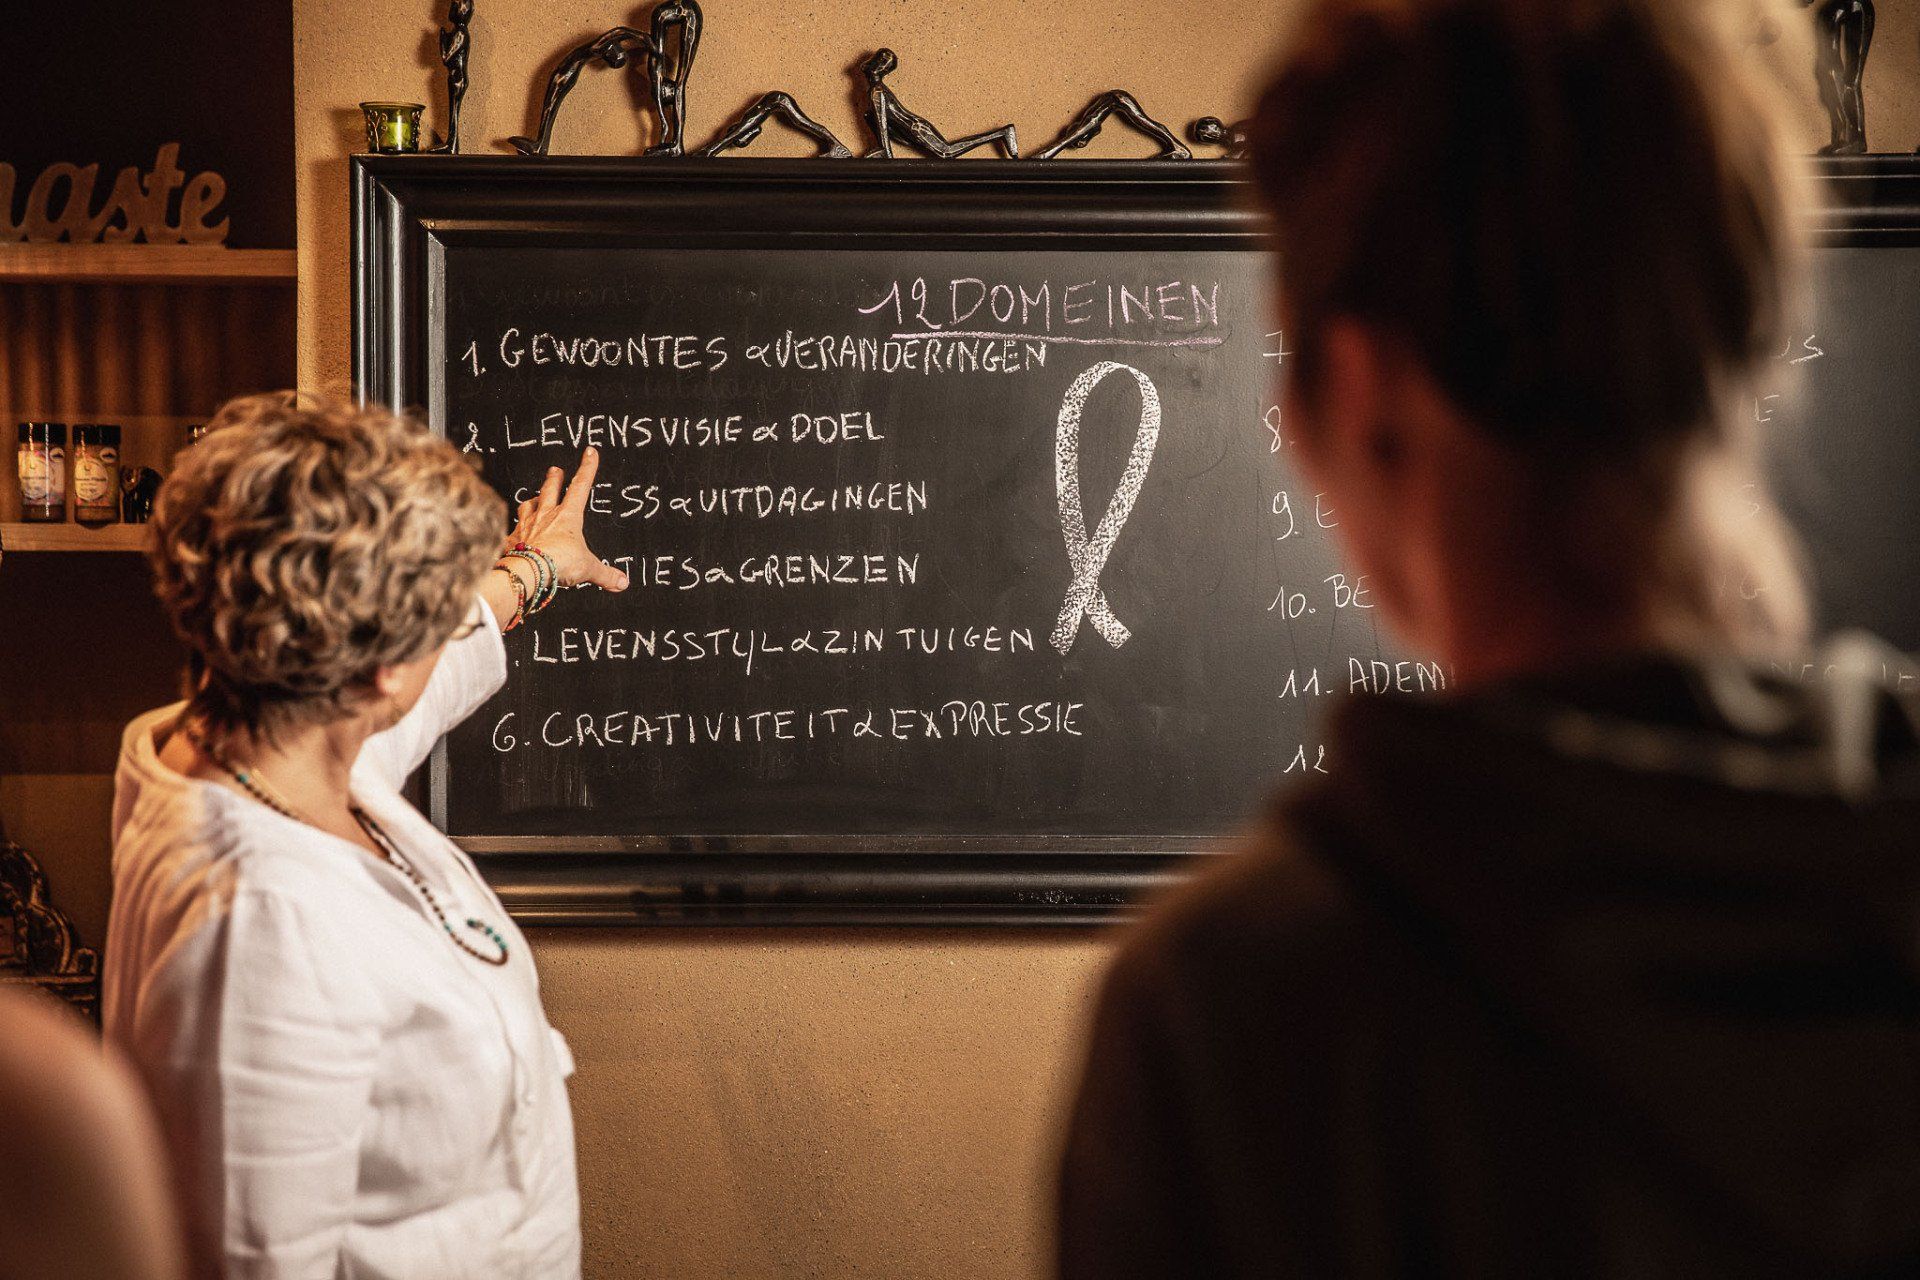 naste
12 DOMEINEN
1. GEWOONTES & VERANDERINGEN
2. LEVENSVISIE & DOEL
S ESS & UITDAGINGEN
TIES & GRENZEN
. LEVENSSTIJL & ZINTUIGEN
6. CREATIVITEIT & EXPRESSIE
7
8.
9. E
10. BE
11. ADEM
12